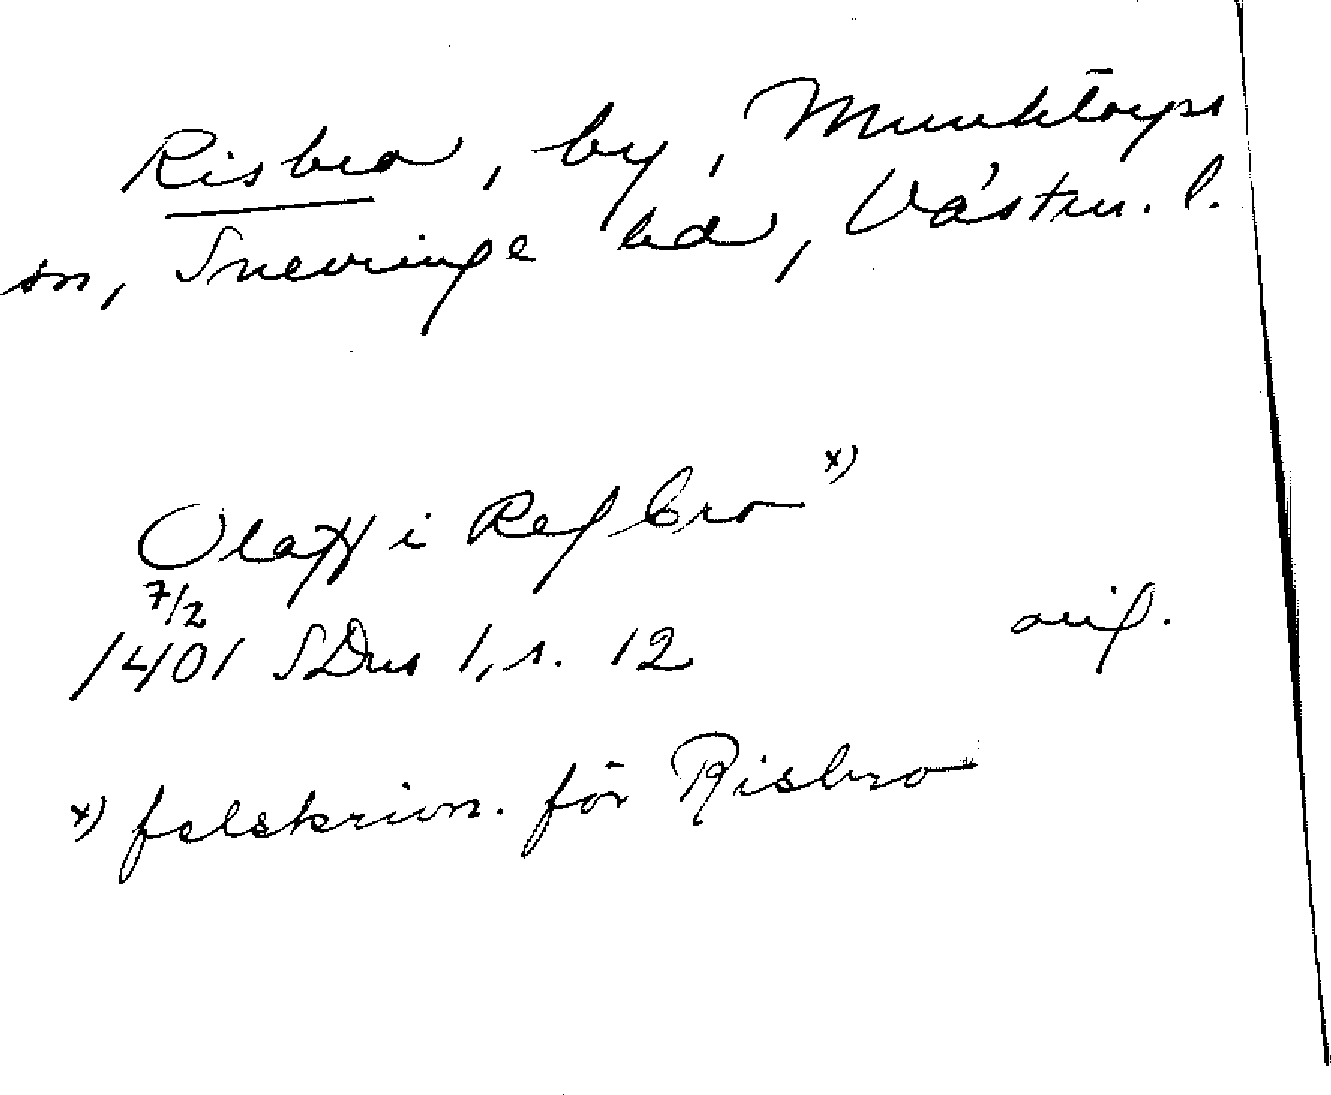 Risbro, by, Munktorps
sn, Snevringe hd, Västm. l.
Olaff i Refbro x)
7/2
1401 SDns 1, s. 12 orig.
x) felskrivn. för Risbro